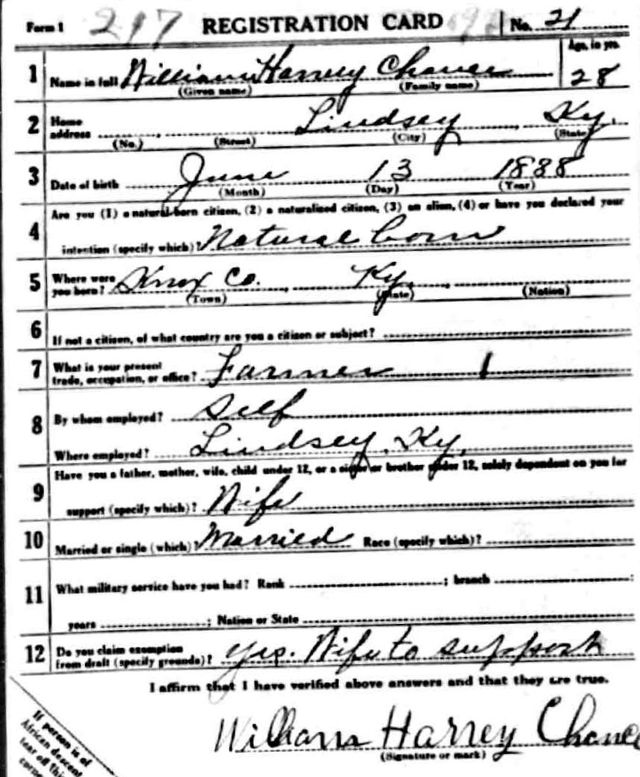 Form 1 217 REGISTRATION CARD No. 21
1 Name in full William Harvey Chance Age, in yrs. 28
(Given name) (Family name)
2 Home address Lindsey, Ky.
(No.) (Street) (City) (State)
3 Date of birth June 13 1888
(Month) (Day) (Year)
Are you (1) a natural-born citizen, (2) a naturalized citizen, (3) an alien, (4) or have you declared your
4 intention (specify which)? Natural born
5 Where were you born? Knox Co., Ky.
(Town) (State) (Nation)
6 If not a citizen, of what country are you a citizen or subject?
7 What is your present trade, occupation, or office? Farmer 1
8 By whom employed? Self
Where employed? Lindsey, Ky.
Have you a father, mother, wife, child under 12, or a sister or brother under 12, solely dependent on you for
9 support (specify which)? Wife
10 Married or single (which)? Married Race (specify which)?
11 What military service have you had? Rank ; branch
years ; Nation or State
12 Do you claim exemption from draft (specify grounds)? Yes. Wife to support
I affirm that I have verified above answers and that they are true.
William Harvey Chance
(Signature or mark)
If person is of
African descent
tear off this
corner